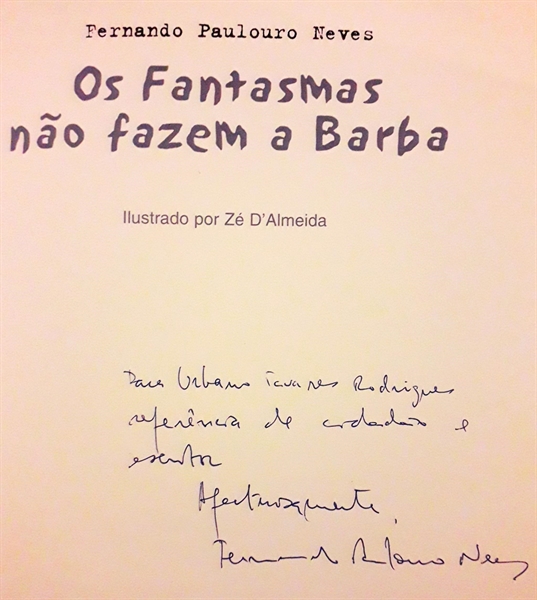 Fernando Paulouro Neves
Os Fantasmas
não fazem a Barba
Ilustrado por Zé D'Almeida
Para Urbano Tavares Rodrigues
referência de cidadão e
escritor
Afectuosamente,
Fernando Paulouro Neves